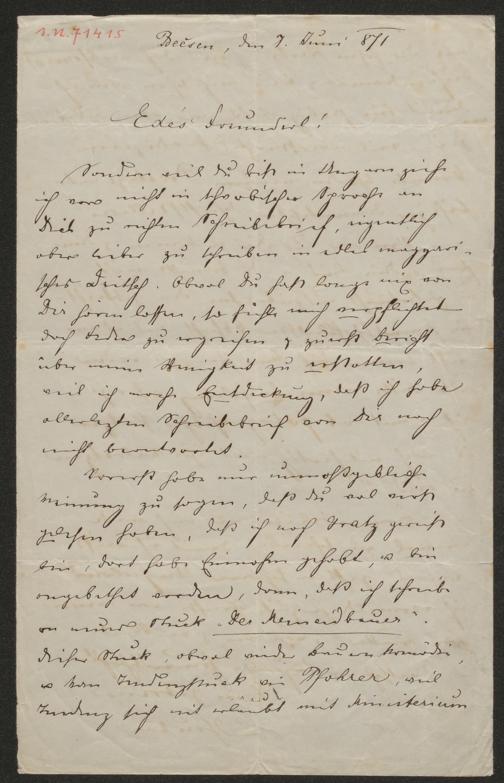 I.N. 71415
Beésen, den 7. Juni 871
Edés Freunderl!
Sondern weil du bist in Ungarn ziehe
ich vor nicht in schwobischer Sproche an
Dich zu richten Schreibebrief, eigentlich
ober lieber zu schreiben in edles magyari-
sches Deitsch. Obwol du hast longe nix von
Dir hören lossen, so fühle mich verpflichtet
doch Feder zu ergreifen & zuerst bericht
über meine Wenigkeit zu erstotten,
weil ich mache Entdeckung, daß ich habe
allerletzten Schreibebrief von Dir noch
nicht beontwortet.
Vorerst habe nur unmoßgebliche
Meinung zu sogen, daß du wol wirst
gelesen haben, daß ich noch Gratz gereist
bin, dort habe Einnohm gehobt, u bin
ongebethet worden, donn, daß ich schreibe
on neues Stuck „Der Meineidbauer".
Dieses Stuck, obwol wieder Bauernkomödie,
u kan Tendenzstuck wie Pfohrer, weil
Tendenz sich nit erlaubt mit Ministerium